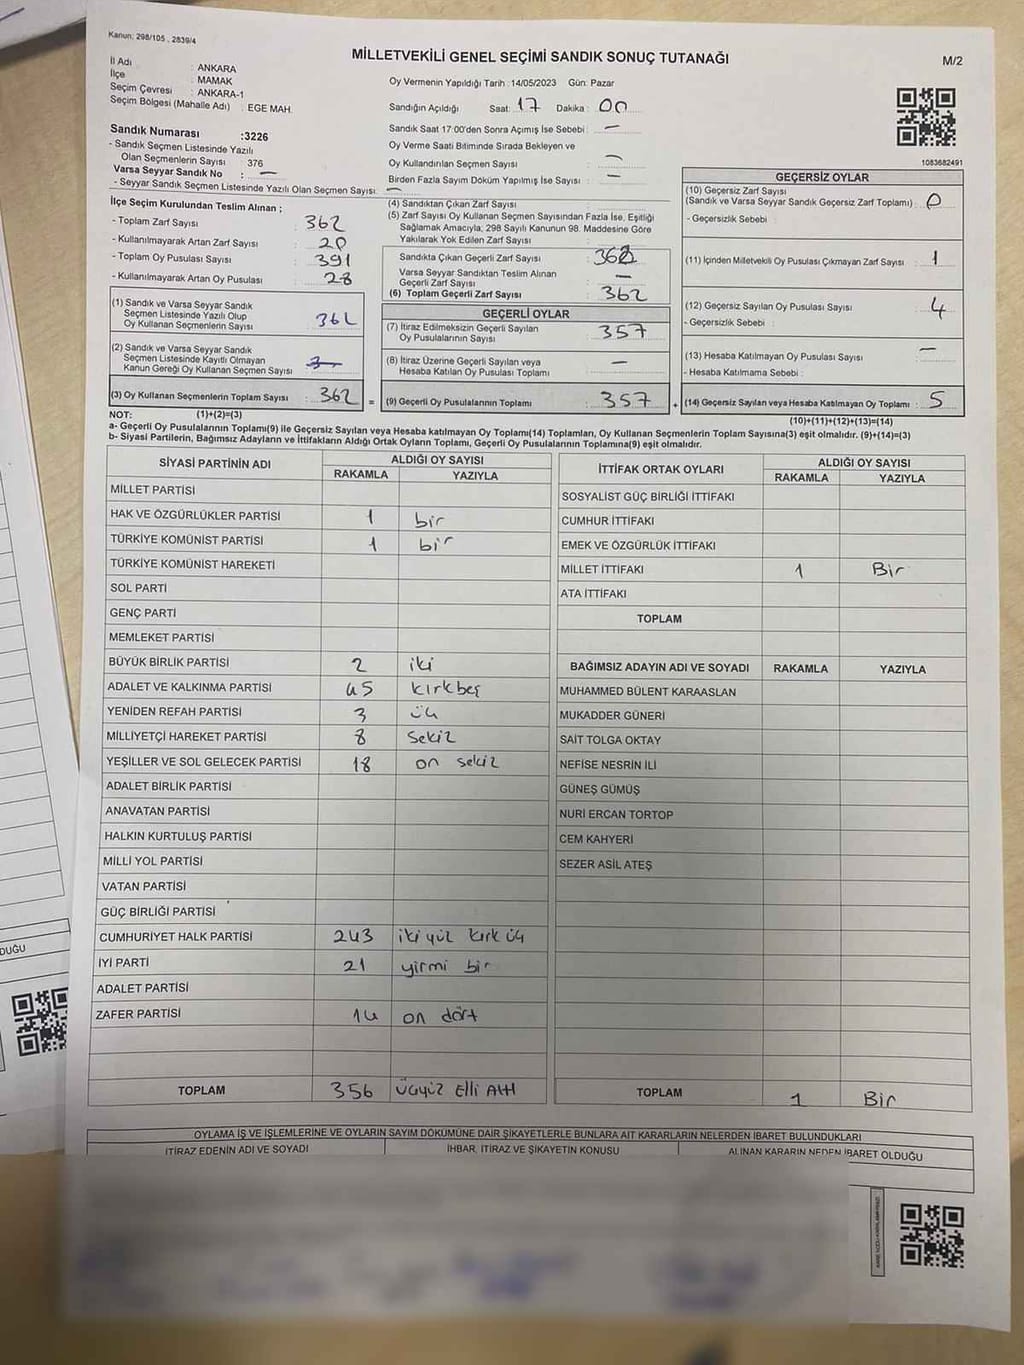 Kanun: 298/105 , 2839/4
MİLLETVEKİLİ GENEL SEÇİMİ SANDIK SONUÇ TUTANAĞI
M/2
İl Adı : ANKARA
İlçe : MAMAK
Seçim Çevresi : ANKARA-1
Seçim Bölgesi (Mahalle Adı) : EGE MAH.
Sandık Numarası :3226
- Sandık Seçmen Listesinde Yazılı
Olan Seçmenlerin Sayısı : 376
Varsa Seyyar Sandık No : —
- Seyyar Sandık Seçmen Listesinde Yazılı Olan Seçmen Sayısı: —
Oy Vermenin Yapıldığı Tarih : 14/05/2023 Gün: Pazar
Sandığın Açıldığı Saat: 17 Dakika : 00
Sandık Saat 17:00'den Sonra Açımış İse Sebebi : —
Oy Verme Saati Bitiminde Sırada Bekleyen ve
Oy Kullandırılan Seçmen Sayısı : —
Birden Fazla Sayım Döküm Yapılmış İse Sayısı : —
1083682491
İlçe Seçim Kurulundan Teslim Alınan ;
- Toplam Zarf Sayısı : 362
- Kullanılmayarak Artan Zarf Sayısı : 20
- Toplam Oy Pusulası Sayısı : 391
- Kullanılmayarak Artan Oy Pusulası : 28
(1) Sandık ve Varsa Seyyar Sandık
Seçmen Listesinde Yazılı Olup
Oy Kullanan Seçmenlerin Sayısı : 362
(2) Sandık ve Varsa Seyyar Sandık
Seçmen Listesinde Kayıtlı Olmayan
Kanun Gereği Oy Kullanan Seçmen Sayısı :
(3) Oy Kullanan Seçmenlerin Toplam Sayısı : 362 =
(4) Sandıktan Çıkan Zarf Sayısı :
(5) Zarf Sayısı Oy Kullanan Seçmen Sayısından Fazla İse, Eşitliği
Sağlamak Amacıyla, 298 Sayılı Kanunun 98. Maddesine Göre
Yakılarak Yok Edilen Zarf Sayısı :
Sandıkta Çıkan Geçerli Zarf Sayısı : 362
Varsa Seyyar Sandıktan Teslim Alınan
Geçerli Zarf Sayısı : —
(6) Toplam Geçerli Zarf Sayısı : 362
GEÇERLİ OYLAR
(7) İtiraz Edilmeksizin Geçerli Sayılan
Oy Pusulalarının Sayısı : 357
(8) İtiraz Üzerine Geçerli Sayılan veya
Hesaba Katılan Oy Pusulası Toplamı : —
(9) Geçerli Oy Pusulalarının Toplamı : 357 +
GEÇERSİZ OYLAR
(10) Geçersiz Zarf Sayısı
(Sandık ve Varsa Seyyar Sandık Geçersiz Zarf Toplamı) : 0
- Geçersizlik Sebebi :
(11) İçinden Milletvekili Oy Pusulası Çıkmayan Zarf Sayısı : 1
(12) Geçersiz Sayılan Oy Pusulası Sayısı : 4
- Geçersizlik Sebebi :
(13) Hesaba Katılmayan Oy Pusulası Sayısı : —
- Hesaba Katılmama Sebebi :
(14) Geçersiz Sayılan veya Hesaba Katılmayan Oy Toplamı : 5
NOT: (1)+(2)=(3)
(10)+(11)+(12)+(13)=(14)
a- Geçerli Oy Pusulalarının Toplamı(9) ile Geçersiz Sayılan veya Hesaba katılmayan Oy Toplamı(14) Toplamları, Oy Kullanan Seçmenlerin Toplam Sayısına(3) eşit olmalıdır. (9)+(14)=(3)
b- Siyasi Partilerin, Bağımsız Adayların ve İttifakların Aldığı Ortak Oyların Toplamı, Geçerli Oy Pusulalarının Toplamına(9) eşit olmalıdır.
SİYASİ PARTİNİN ADI ALDIĞI OY SAYISI
RAKAMLA YAZIYLA
MİLLET PARTİSİ
HAK VE ÖZGÜRLÜKLER PARTİSİ 1 bir
TÜRKİYE KOMÜNİST PARTİSİ 1 bir
TÜRKİYE KOMÜNİST HAREKETİ
SOL PARTİ
GENÇ PARTİ
MEMLEKET PARTİSİ
BÜYÜK BİRLİK PARTİSİ 2 iki
ADALET VE KALKINMA PARTİSİ 45 kırkbeş
YENİDEN REFAH PARTİSİ 3 üç
MİLLİYETÇİ HAREKET PARTİSİ 8 sekiz
YEŞİLLER VE SOL GELECEK PARTİSİ 18 on sekiz
ADALET BİRLİK PARTİSİ
ANAVATAN PARTİSİ
HALKIN KURTULUŞ PARTİSİ
MİLLİ YOL PARTİSİ
VATAN PARTİSİ
GÜÇ BİRLİĞİ PARTİSİ
CUMHURİYET HALK PARTİSİ 243 iki yüz kırk üç
İYİ PARTİ 21 yirmi bir
ADALET PARTİSİ
ZAFER PARTİSİ 14 on dört
TOPLAM 356 Üçyüz Elli Altı
İTTİFAK ORTAK OYLARI ALDIĞI OY SAYISI
RAKAMLA YAZIYLA
SOSYALİST GÜÇ BİRLİĞİ İTTİFAKI
CUMHUR İTTİFAKI
EMEK VE ÖZGÜRLÜK İTTİFAKI
MİLLET İTTİFAKI 1 Bir
ATA İTTİFAKI
TOPLAM
BAĞIMSIZ ADAYIN ADI VE SOYADI RAKAMLA YAZIYLA
MUHAMMED BÜLENT KARAASLAN
MUKADDER GÜNERİ
SAİT TOLGA OKTAY
NEFİSE NESRİN İLİ
GÜNEŞ GÜMÜŞ
NURİ ERCAN TORTOP
CEM KAHYERİ
SEZER ASİL ATEŞ
TOPLAM 1 Bir
OYLAMA İŞ VE İŞLEMLERİNE VE OYLARIN SAYIM DÖKÜMÜNE DAİR ŞİKAYETLERLE BUNLARA AİT KARARLARIN NELERDEN İBARET BULUNDUKLARI
İTİRAZ EDENİN ADI VE SOYADI İHBAR, İTİRAZ VE ŞİKAYETİN KONUSU ALINAN KARARIN NEDEN İBARET OLDUĞU